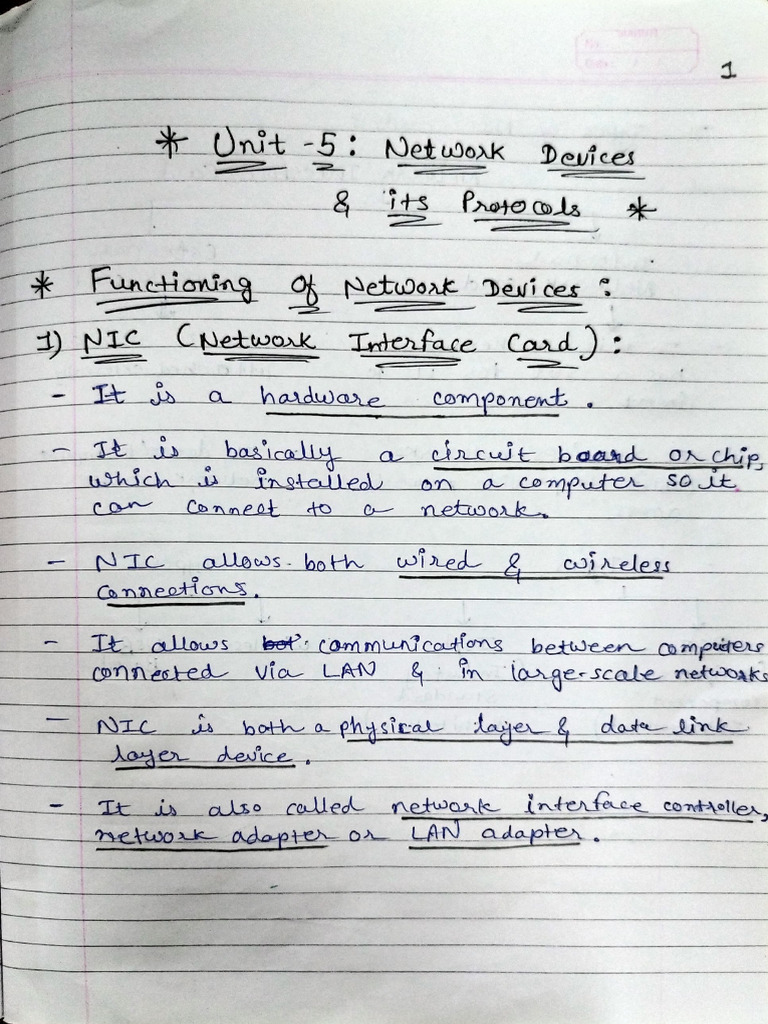 1
* Unit -5: Network Devices
& its Protocols *
* Functioning Of Network Devices:
1) NIC (Network Interface Card):
- It is a hardware component.
- It is basically a circuit board or chip,
which is installed on a computer so it
can connect to a network.
- NIC allows both wired & wireless
connections.
- It allows communications between computers
connected via LAN & in large-scale networks
- NIC is both a physical layer & data link
layer device.
- It is also called network interface controller,
network adapter or LAN adapter.